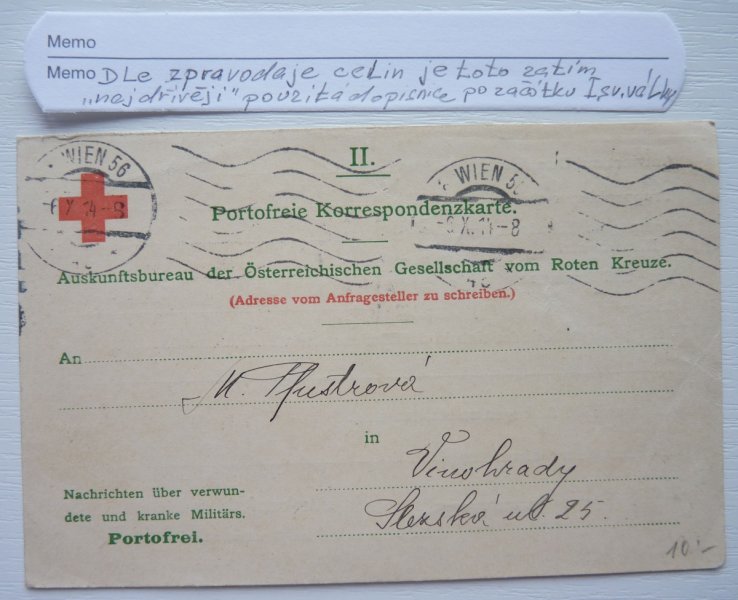 Memo
Memo DLe zpravodaje celin je toto zatím
„nejdřívěji" použitá dopisnice po začátku I.sv.války
WIEN 56
X 14-8
WIEN 5
-9 X. 14-8
II.
Portofreie Korrespondenzkarte.
Auskunftsbureau der Österreichischen Gesellschaft vom Roten Kreuze.
(Adresse vom Anfragesteller zu schreiben.)
An
M. Pfustrová
in
Vinohrady
Slezská ul. 25.
Nachrichten über verwun-
dete und kranke Militärs.
Portofrei.
10.-